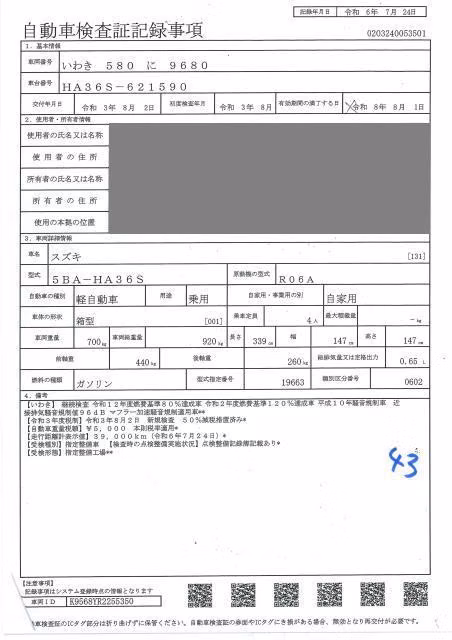 記録年月日 令和 6年 7月 24日
自動車検査証記録事項
0203240053501
1. 基本情報
車両番号 いわき 580 に 9680
車台番号 HA36S-621590
交付年月日 令和 3年 8月 2日 初度検査年月 令和 3年 8月 有効期間の満了する日 令和 8年 8月 1日
2. 使用者・所有者情報
使用者の氏名又は名称
使用者の住所
所有者の氏名又は名称
所有者の住所
使用の本拠の位置
3. 車両詳細情報
車名 スズキ [131]
型式 5BA-HA36S 原動機の型式 R06A
自動車の種別 軽自動車 用途 乗用 自家用・事業用の別 自家用
車体の形状 箱型 [001] 乗車定員 4人 最大積載量 -kg
車両重量 700kg 車両総重量 920kg 長さ 339cm 幅 147cm 高さ 147cm
前軸重 440kg 後軸重 260kg 総排気量又は定格出力 0.65 L
燃料の種類 ガソリン 型式指定番号 19663 類別区分番号 0602
4. 備考
【いわき】 継続検査 令和12年度燃費基準80%達成車 令和2年度燃費基準120%達成車 平成10年騒音規制車 近
接排気騒音規制値96dB マフラー加速騒音規制適用車**
【令和3年度税制】令和3年8月2日 新規検査 50%減税措置済み*
【自動車重量税額】¥5,000 本則税率適用*
【走行距離計表示値】39,000km(令和6年7月24日)*
【受検種別】指定整備車 【検査時の点検整備実施状況】点検整備記録簿記載あり*
【受検形態】指定整備工場**
43
【注意事項】
記録事項はシステム登録時点の情報となります
車両ID K9568YR2255350
車検査証のICタグ部分は折り曲げずに保管ください。自動車検査証の券面やICタグにき損がある場合、無効となり再交付が必要です。